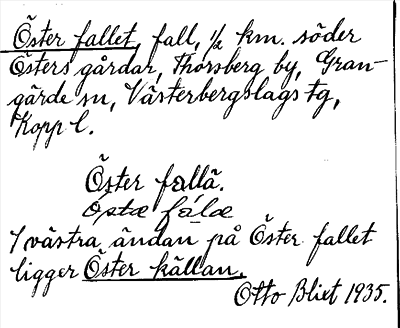 Öster fallet, fall, ½ km. söder
Östers gårdar, Thorsberg by, Gran-
gärde sn, Västerbergslags tg,
Kopp l.
Öster fallä.
Östæ falæ
I västra ändan på Öster fallet
ligger Öster källan.
Otto Blixt 1935.